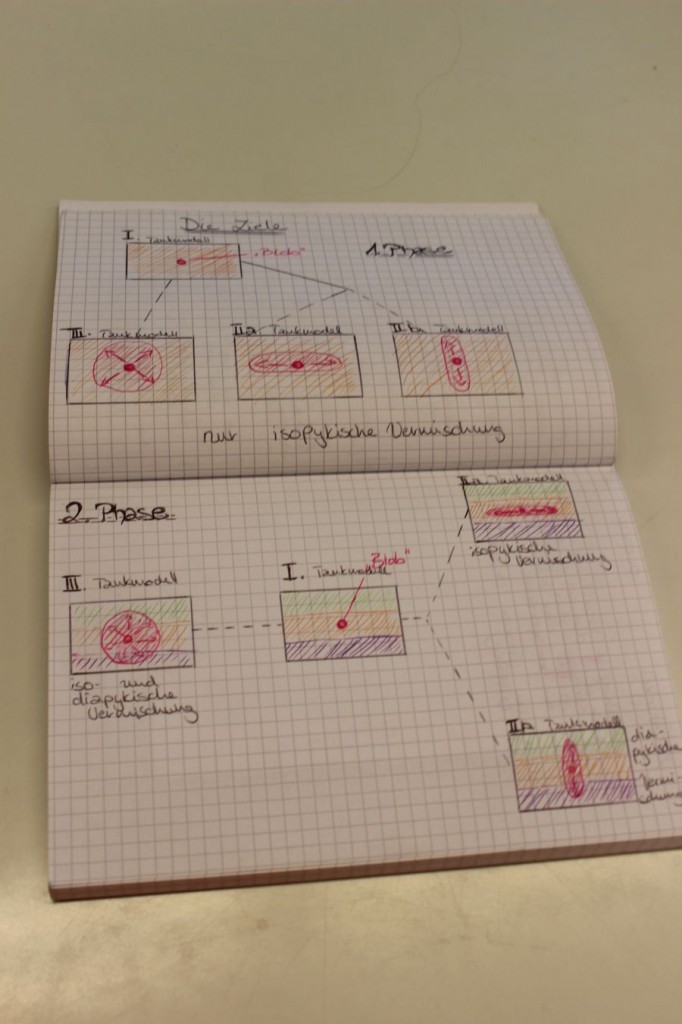 Die Ziele
I. Tankmodell
„Blob"
1. Phase
III. Tankmodell
IIa. Tankmodell
IIb. Tankmodell
nur isopykische Vermischung
2. Phase
IIa. Tankmodell
isopykische
Vermischung
III. Tankmodell
I. Tankmodell
„Blob"
iso- und
diapykische
Vermischung
IIb Tankmodell
dia-
pykische
Vermi-
schung